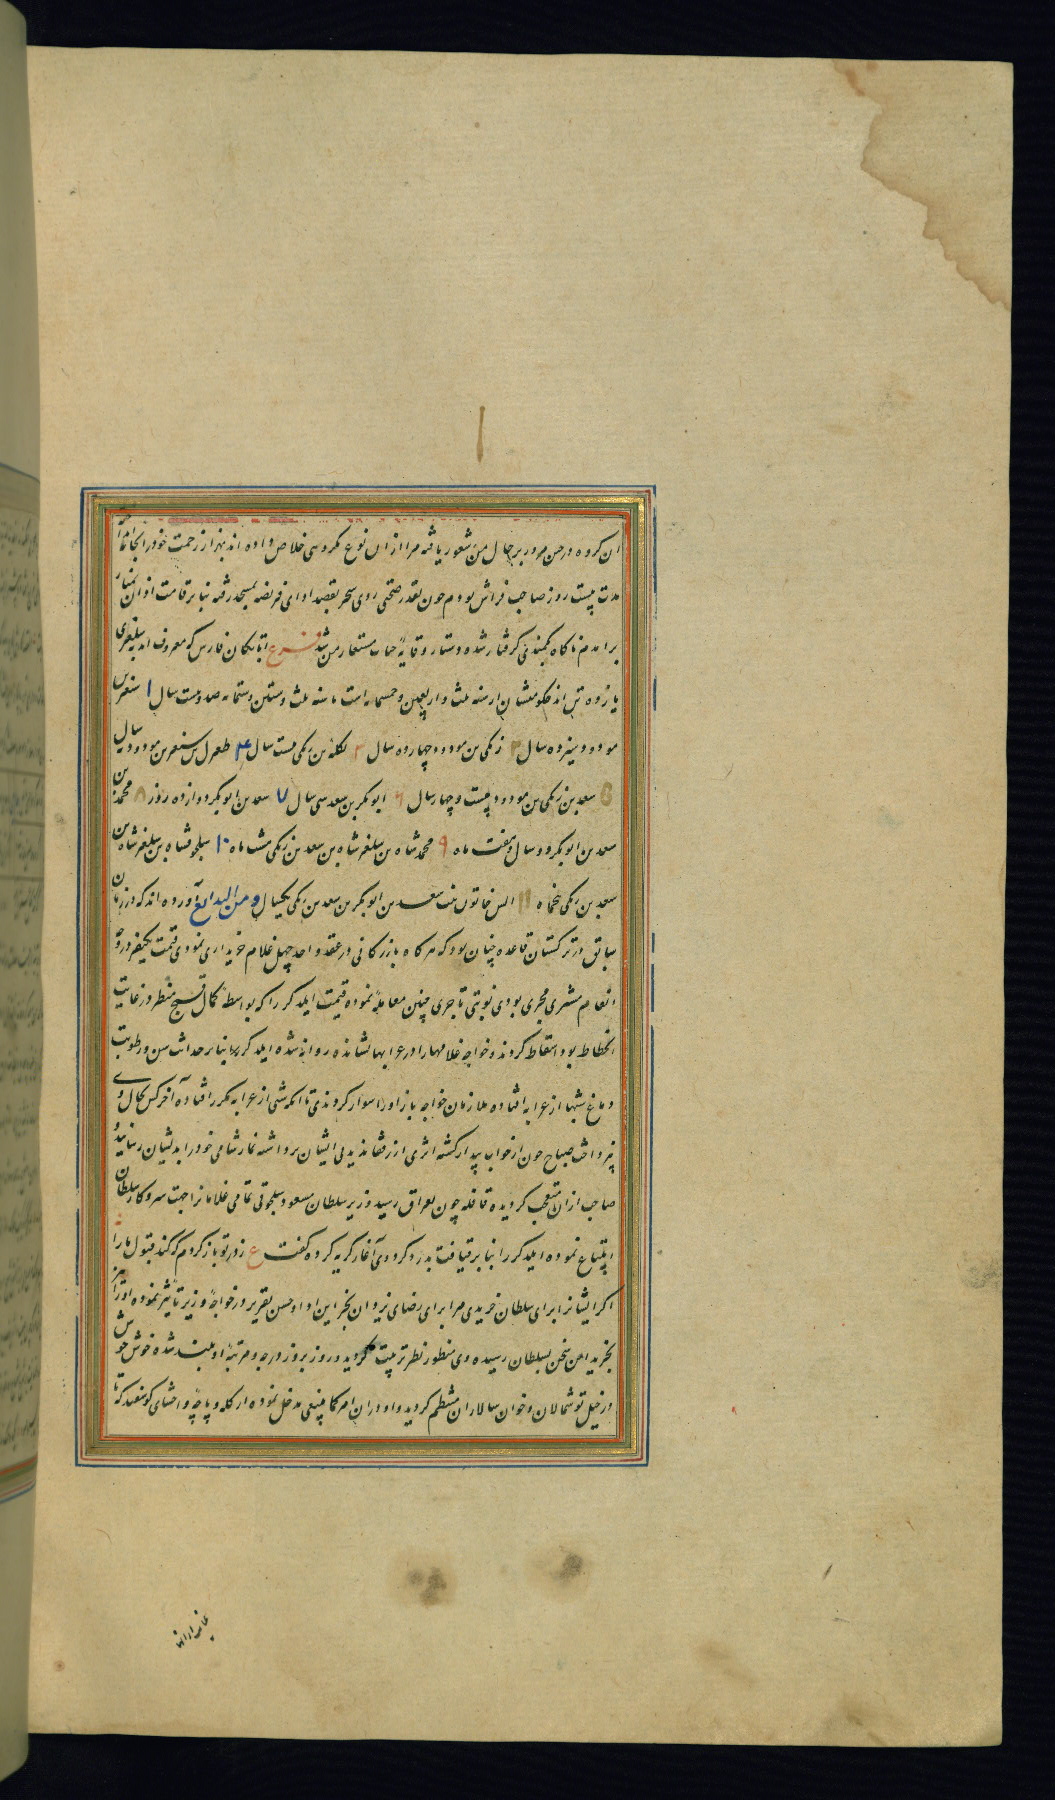 ان کروه در حین مرور بر حال من شعور یافته مرا از ان نوع مکروهی خلاص داده اند بهزار زحمت خود را بخانه
مدت بیست روز صاحب فراش بودم چون بقدر صحتی روی سحر بقصد ادای فریضه بمسجد رفته بنا بر قامت اذان بمنار
برامدم ناکاه بکمند کرفتار شده دستار و حیات مستعار من شد فرع اتابکان فارس که معروف اند بسلغری
یازده تن اند حکومتشان از سنه ثلث و اربعین و خمسمایه است تا سنه ثلث و ستین و ستمایه صد و بیست سال ۱ سنقر بن
مودود سیزده سال ۲ زنکی بن مودود چهارده سال ۳ تکله بن زنکی بیست سال ۴ طغرل بن سنقر بن مودود سال
۵ سعد بن زنکی بن مودود بیست و چهار سال ۶ ابوبکر بن سعد سی سال ۷ سعد بن ابوبکر دوازده روز ۸ محمد بن
سعد بن ابوبکر دو سال و هفت ماه ۹ محمد شاه بن سلغر شاه بن سعد بن زنکی هشت ماه ۱۰ سلجوقشاه بن سلغر شاه بن
سعد بن زنکی پنجماه ۱۱ ابش خاتون بنت سعد بن ابوبکر بن سعد بن زنکی یکسال و من البدایع آورده اند که در زمان
سابق در ترکستان قاعده چنان بود که هر کاه بازرکانی در عقد واحد چهل غلام خریداری نمودی قیمت یکنفر در وجه
انعام مشتری مجری بودی نوبتی تاجری چنین معامله نموده قیمت ایلدکز را که بواسطه کمال قبح منظر در غایت
انحطاط بود اسقاط کردند و خواجه غلامها را در عرابها نشانده روانه شده ایلدکز بنا بر حداثت سن و رطوبت
دماغ شبها از عرابه افتاده ملازمان خواجه باز او را سوار کردندی تا انکه شبی از عرابه مکرر افتاده آخر کس بحال وی
نپرداخت صباح چون از خواب بیدار کشته اثری از رفقا ندید پی ایشان برداشته نماز شامی خود را بدیشان رسانید و
صاحب از ان متعجب کردیده قافله چون بعراق رسید وزیر سلطان مسعود سلجوقی تمامی غلامانرا جهت سرکار سلطان
ابتیاع نموده ایلدکز را بنا بر قیافت بد رد کرد وی آغاز کریه کرده کفت ع ز در تو باز کردم که کند قبول ما را
اکر ایشانرا برای سلطان خریدی مرا برای رضای یزدان بخر این ادا و حسن تقریر در خواجه وزیر تأثیر نموده او را نیز
بخرید این سخن بسلطان رسیده وی منظور نظر تربیت کردید و روز بروز درجه و مرتبه او بلند شده خوش خوش
در خیل توشمالان و خوان سالاران منتظم کردید و او در ان امر مدخل نموده از کله و پاچه و احشای کوسفند که تا